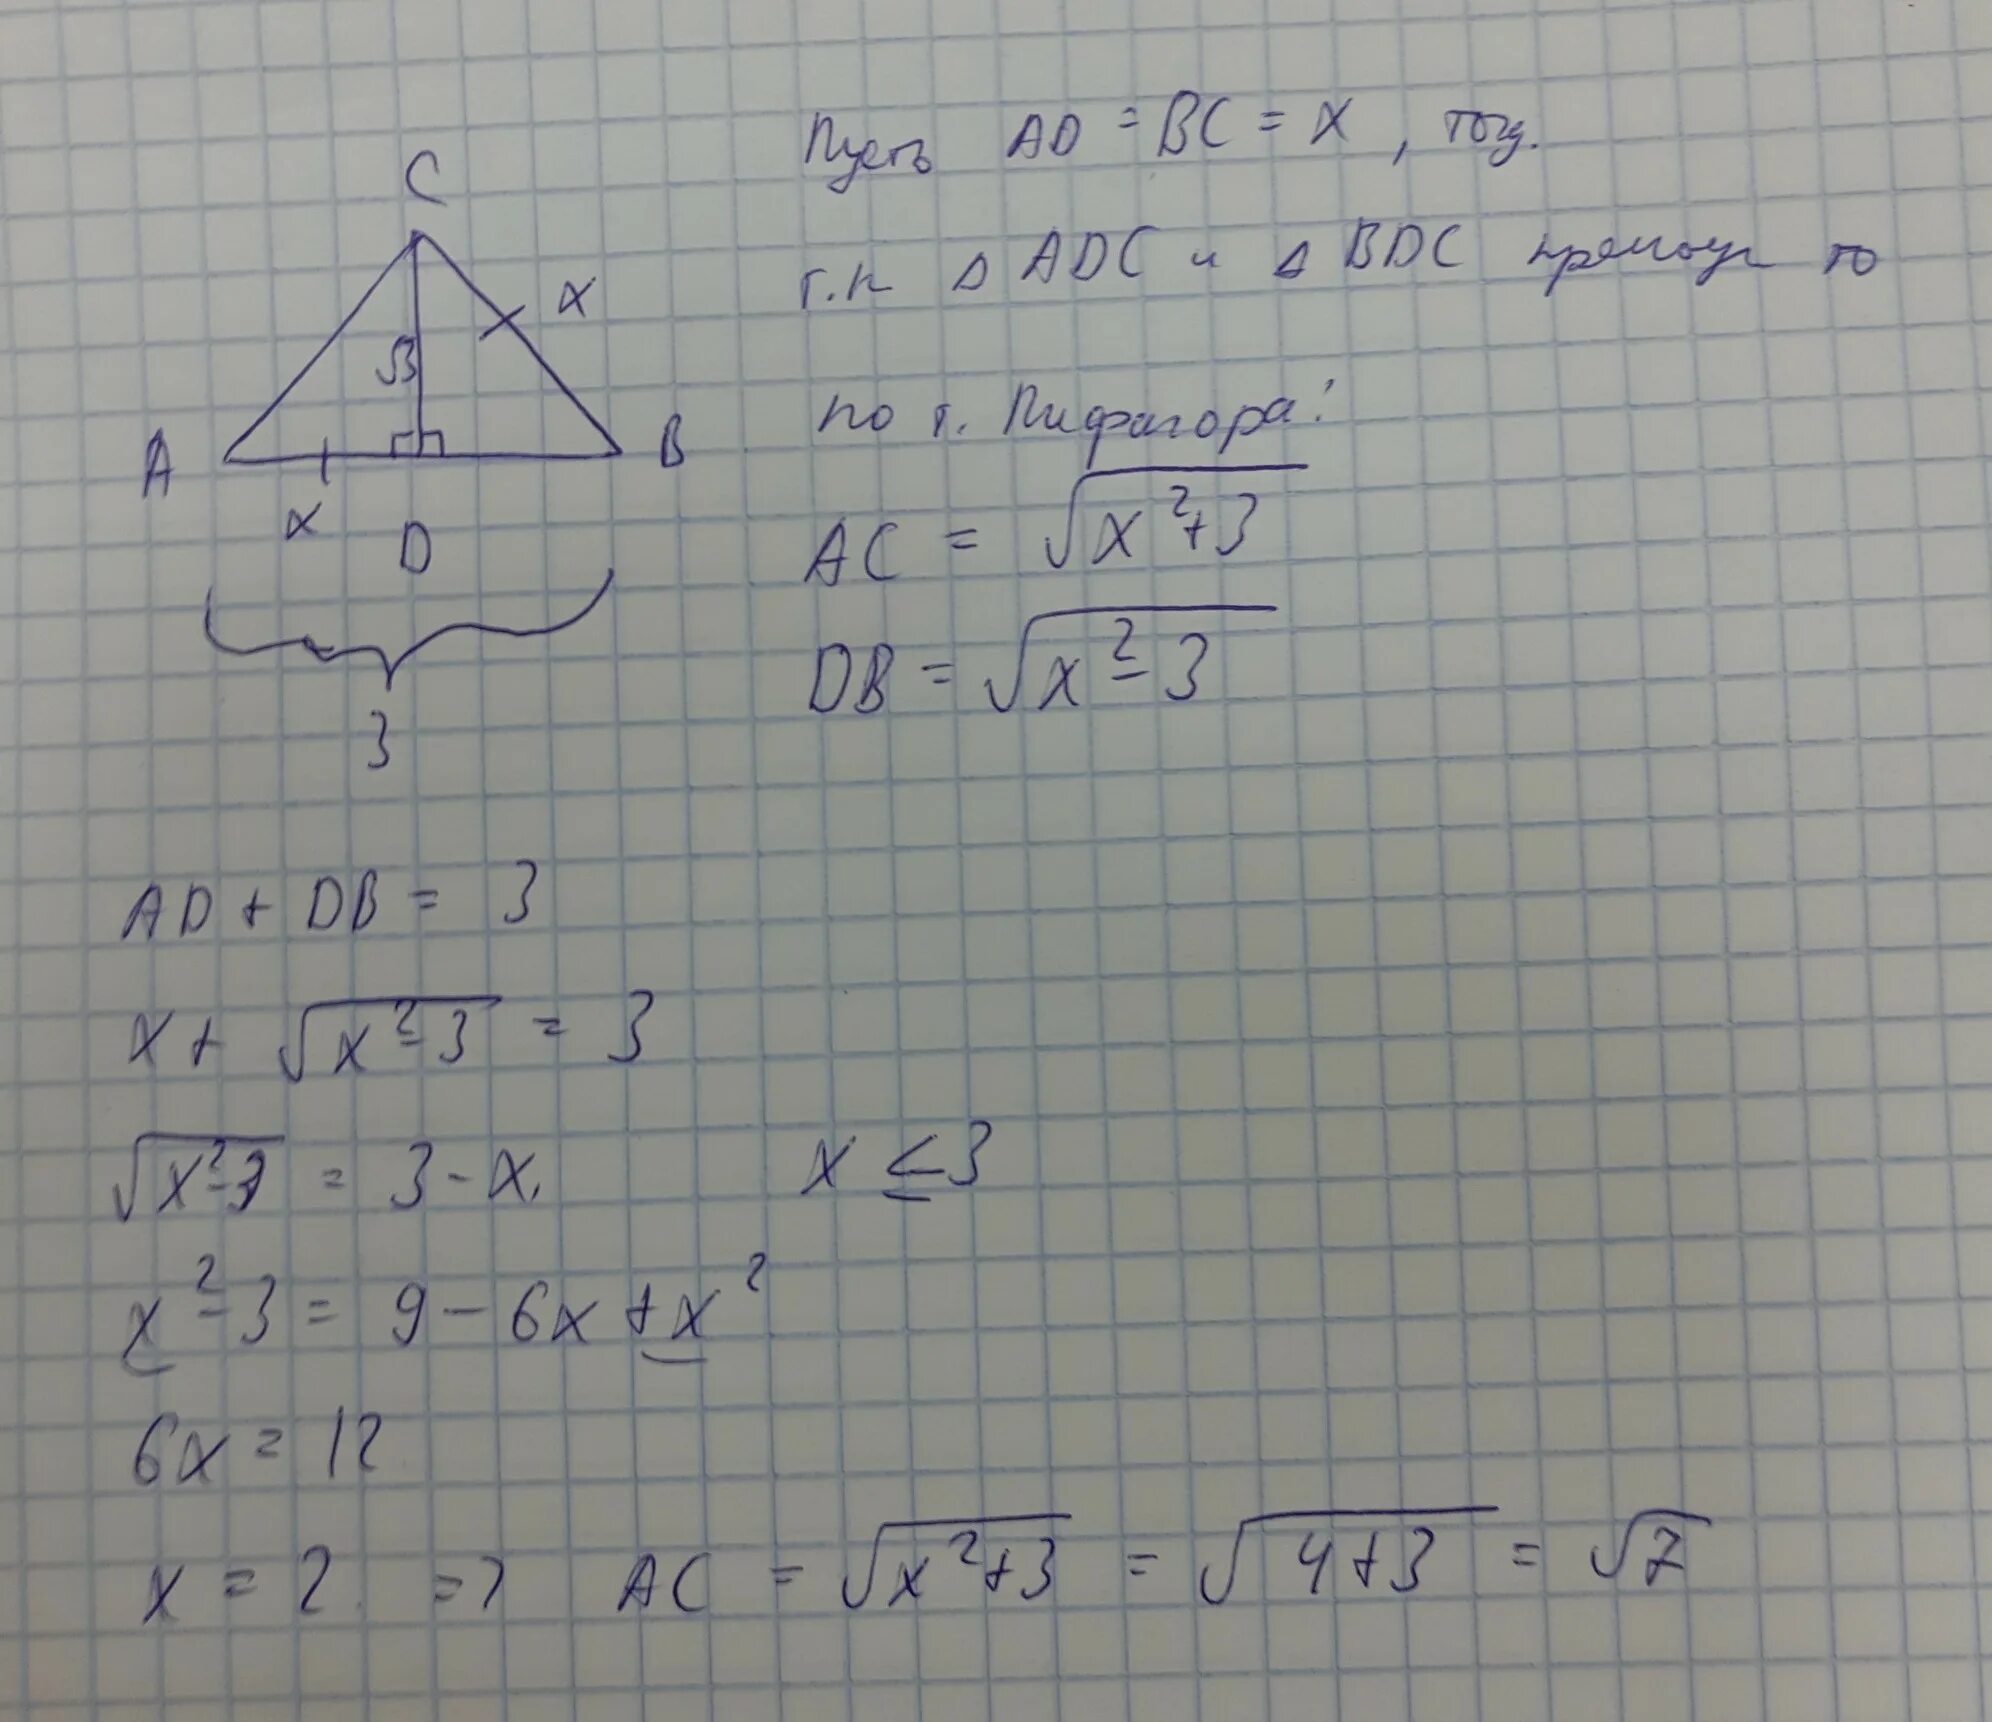 Пусть AD = BC = x, тогд.
т.к △ ADC и △ BDC прямоуг то
по т. Пифагора:
AC = √(x²+3)
DB = √(x²-3)
C
√3
x
A
B
x
D
3
AD + DB = 3
x + √(x²-3) = 3
√(x²-3) = 3 - x, x ≤ 3
x² - 3 = 9 - 6x + x²
6x = 12
x = 2 => AC = √(x²+3) = √(4+3) = √7